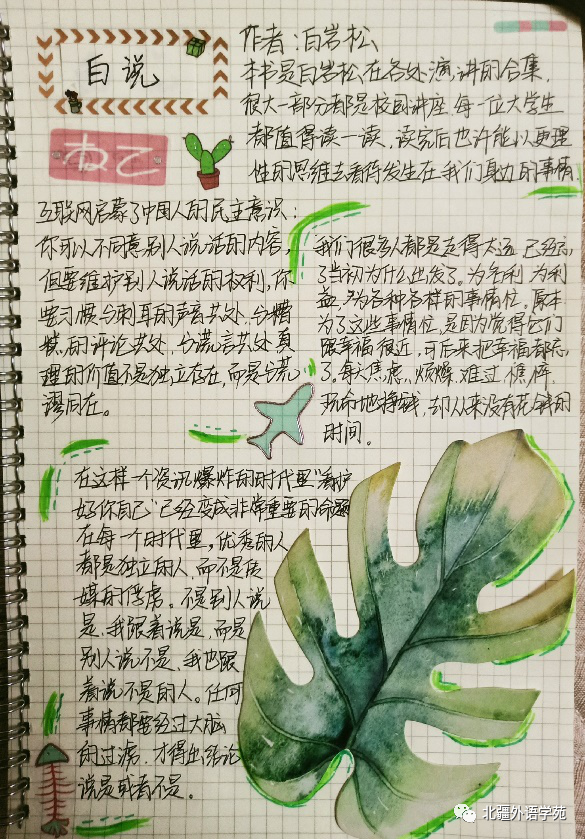 白说
ねこ
作者：白岩松
本书是白岩松在各处演讲的合集，
很大一部分都是校园讲座，每一位大学生
都值得读一读，读完后也许能以更理
性的思维去看待发生在我们身边的事情
互联网启蒙了中国人的民主意识：
你可以不同意别人说话的内容，
但要维护别人说话的权利，你
要习惯与刺耳的声音共处，与糟
糕的评论共处，与谎言共处，真
理的价值不是独立存在，而是与荒
谬同在。
我们很多人都是走得太远，已经忘
了当初为什么出发了。为名利为利
益，为各种各样的事情忙。原本
为了这些事情忙，是因为觉得它们
跟幸福很近，可后来把幸福都忘
了。每天焦虑、烦燥、难过、憔悴，
玩命地挣钱，却从来没有花钱的
时间。
在这样一个资讯爆炸的时代里"看护
好你自己"已经变成非常重要的命题
在每一个时代里，优秀的人
都是独立的人，而不是传
媒的俘虏。不是别人说
是，我跟着说是，而是
别人说不是，我也跟
着说不是的人。任何
事情都要经过大脑
的过滤，才得出结论
说是或者不是。
北疆外语学苑